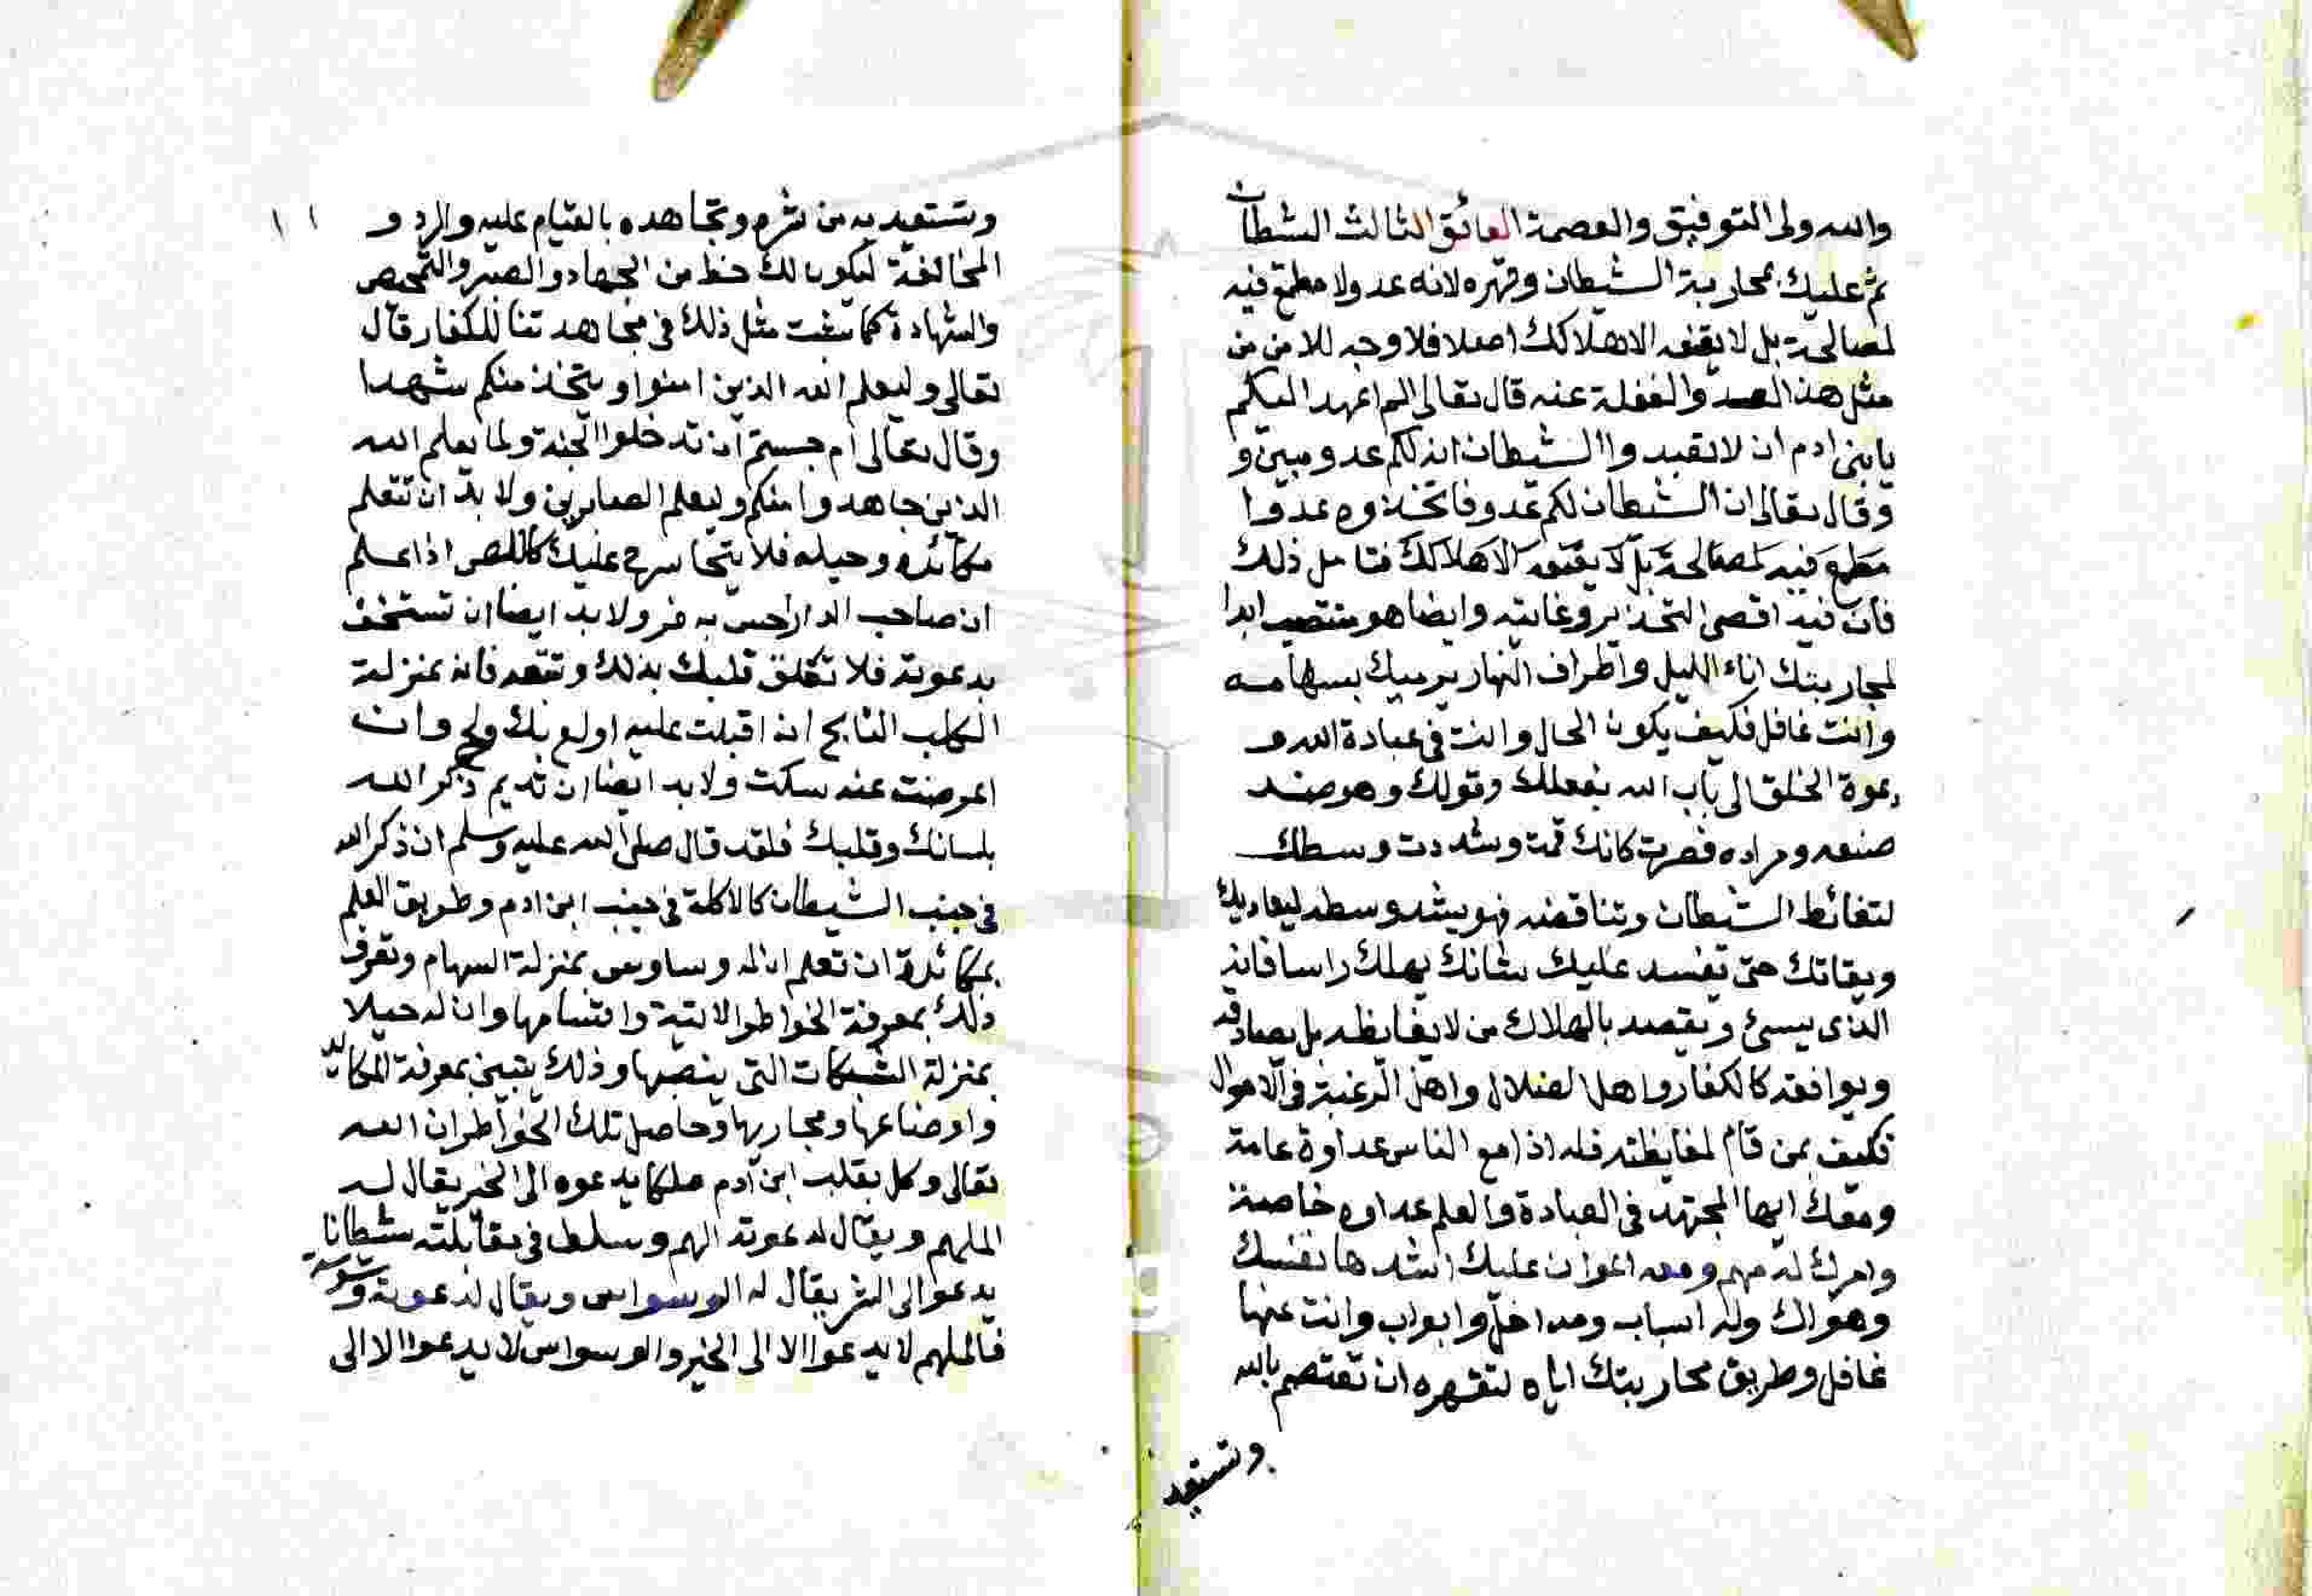 والله ولى التوفيق والعصمة العائق الثالث الشيطان
ثم عليك بمحاربة الشيطان وقهره لانه عدو لا مطمع فيه
لمصالحة بل لا يقنعه الا هلاكك اصلا فلا وجه للامن من
مثل هذا العدو والغفلة عنه قال تعالى الم اعهد اليكم
يا بنى ادم ان لا تعبدوا الشيطان انه لكم عدو مبين و
وقال تعالى ان الشيطان لكم عدو فاتخذوه عدوا
مطمع فيه لمصالحة بل لا يقنعه الا هلاكك فتامل ذلك
فان فيه اقصى التحذير وغايته وايضا هو منتصب ابدا
لمحاربتك اناء الليل واطراف النهار يرميك بسهامه
وانت غافل فكيف يكون الحال وانت فى عبادة الله و
دعوة الخلق الى باب الله بفعلك وقولك وهو ضد
صنعه ومراده فصرت كانك قمت وشددت وسطك
لتغائظ الشيطان وتناقضه فهو يشد وسطه ليعاديك
ويقاتك حتى يفسد عليك شانك يهلك راسا فانه
الذى يسئ ويقصد بالهلاك من لا يغايظه بل يصادقه
ويوافقه كالكفار واهل الضلال واهل الرغبة فى الاموال
فكيف بمن قام لمغايظته فله اذا مع الناس عداوة عامة
ومعك ايها المجتهد فى العبادة والعلم عداوه خاصة
وامرك له مهم ومعه اعوان عليك اشدها نفسك
وهواك وله اسباب ومداخل وابواب وانت عنها
غافل وطريق محاربتك اياه لتقهره ان تعتصم بالله
وتستعيد
وتستعيد به من شره وتجاهده بالقيام عليه والرد و
المخالفة ليكون لك حظ من الجهاد والصبر والتمحيص
والشهادة كما يثبت مثل ذلك فى مجاهدتنا للكفار قال
تعالى وليعلم الله الذين امنوا ويتخذ منكم شهدا
وقال تعالى ام حسبتم ان تدخلوا الجنة ولما يعلم الله
الذين جاهدوا منكم ويعلم الصابرين ولا بد ان تتعلم
مكائده وحيله فلا يتجاسر ح عليك كاللص اذا علم
ان صاحب الدار احس به فر ولا بد ايضا ان تستخف
بدعوته فلا تعلق قلبك بذلك وتتبعه فانه بمنزلة
الكلب النابح ان اقبلت عليه اولع بك ولح وان
اعرضت عنه سكت ولا بد ايضا ان تديم ذكر الله
بلسانك وقلبك فلقد قال صلى الله عليه وسلم ان ذكر الله
فى جنب الشيطان كالاكلة فى جنب ابن ادم وطريق العلم
بمكائدة ان تعلم ان له وساوس بمنزلة السهام وتعرف
ذلك بمعرفة الخواطر الاتية واقسامها وان له حيلا
بمنزلة الشبكات التى ينصبها وذلك يتبين بمعرفة المكايد
واوضاعها ومجاريها وحاصل تلك الخواطر ان الله
تعالى وكل بقلب ابن آدم ملكا يدعوه الى الخير يقال له
الملهم ويقال لدعوته الهم وسلط فى مقابلته شيطانا
يدعوا الى الشر يقال له الوسواس ويقال لدعوته وسوسة
فالملهم لا يدعوا الا الى الخير والوسواس لا يدعوا الا الى